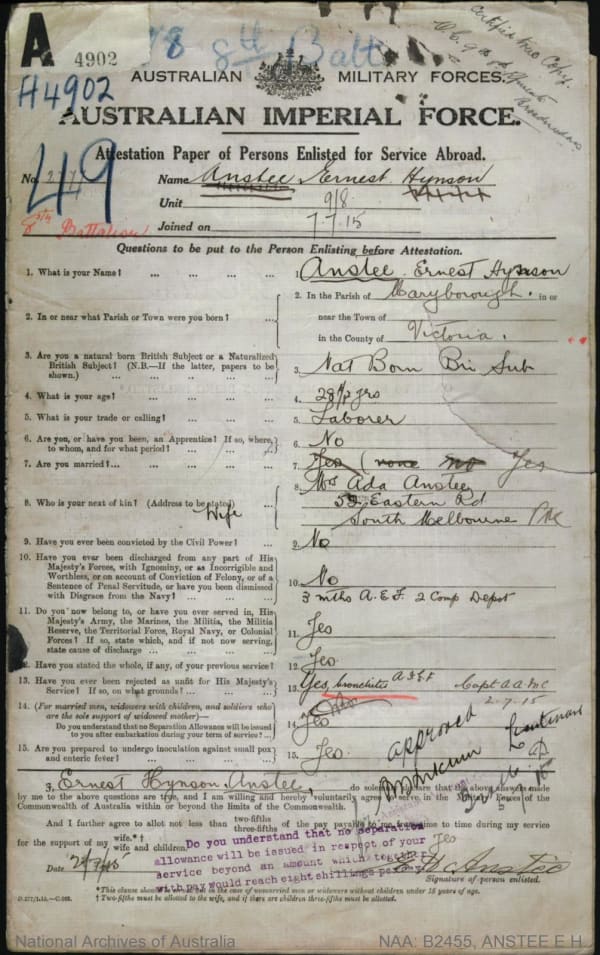 A
4902
H4902
78 8th Batt
Certified true Copy
AUSTRALIAN MILITARY FORCES.
AUSTRALIAN IMPERIAL FORCE.
Attestation Paper of Persons Enlisted for Service Abroad.
49
No. Name Anstee Ernest Hynson
Unit 9/8
8th Battalion
Joined on 7.7.15
Questions to be put to the Person Enlisting before Attestation.
1. What is your Name? ... ... ... ... 1. Anstee Ernest Hynson
2. In or near what Parish or Town were you born? ... 2. In the Parish of Maryborough in or
near the Town of
in the County of Victoria.
3. Are you a natural born British Subject or a Naturalized
British Subject? (N.B.—If the latter, papers to be
shown.) ... ... ... ... ... 3. Nat Born Bri Sub
4. What is your age? ... ... ... ... 4. 28 yrs
5. What is your trade or calling? ... ... ... 5. Laborer
6. Are you, or have you been, an Apprentice? If so, where,
to whom, and for what period? ... ... ... 6. No
7. Are you married?... ... ... ... ... 7. Yes No Yes
8. Who is your next of kin? (Address to be stated) 8. Mrs Ada Anstee
Wife
52 Eastern Rd
South Melbourne
9. Have you ever been convicted by the Civil Power? ... 9. No
10. Have you ever been discharged from any part of His
Majesty's Forces, with Ignominy, or as Incorrigible and
Worthless, or on account of Conviction of Felony, or of a
Sentence of Penal Servitude, or have you been dismissed
with Disgrace from the Navy? ... ... ... 10. No
3 mths A.I.F. 2 Comp Depot
11. Do you now belong to, or have you ever served in, His
Majesty's Army, the Marines, the Militia, the Militia
Reserve, the Territorial Force, Royal Navy, or Colonial
Forces? If so, state which, and if not now serving,
state cause of discharge ... ... ... 11. Yes
12. Have you stated the whole, if any, of your previous service? 12. Yes
13. Have you ever been rejected as unfit for His Majesty's
Service? If so, on what grounds? ... ... ... 13. Yes, bronchitis A.I.F Capt A A M C
2.7.15
14. (For married men, widowers with children, and soldiers who
are the sole support of widowed mother)—
Do you understand that no Separation Allowance will be issued
to you after embarkation during your term of service? ... 14. Yes
15. Are you prepared to undergo inoculation against small pox
and enteric fever? ... ... ... ... 15. Yes
approved
Lieutenant
I, Ernest Hynson Anstee, do solemnly declare that the above answers made
by me to the above questions are true, and I am willing and hereby voluntarily agree to serve in the Military Forces of the
Commonwealth of Australia within or beyond the limits of the Commonwealth.
And I further agree to allot not less than two-fifths
three-fifths of the pay payable to me from time to time during my service
for the support of my wife.*†
wife and children.
Do you understand that no separation
allowance will be issued in respect of your
service beyond an amount which together
with pay would reach eight shillings per day
Yes
Date 2/7/15
E H Anstee
Signature of person enlisted.
*This clause should be struck out in the case of unmarried men or widowers without children under 18 years of age.
†Two-fifths must be allotted to the wife, and if there are children three-fifths must be allotted.
National Archives of Australia
NAA: B2455, ANSTEE E H